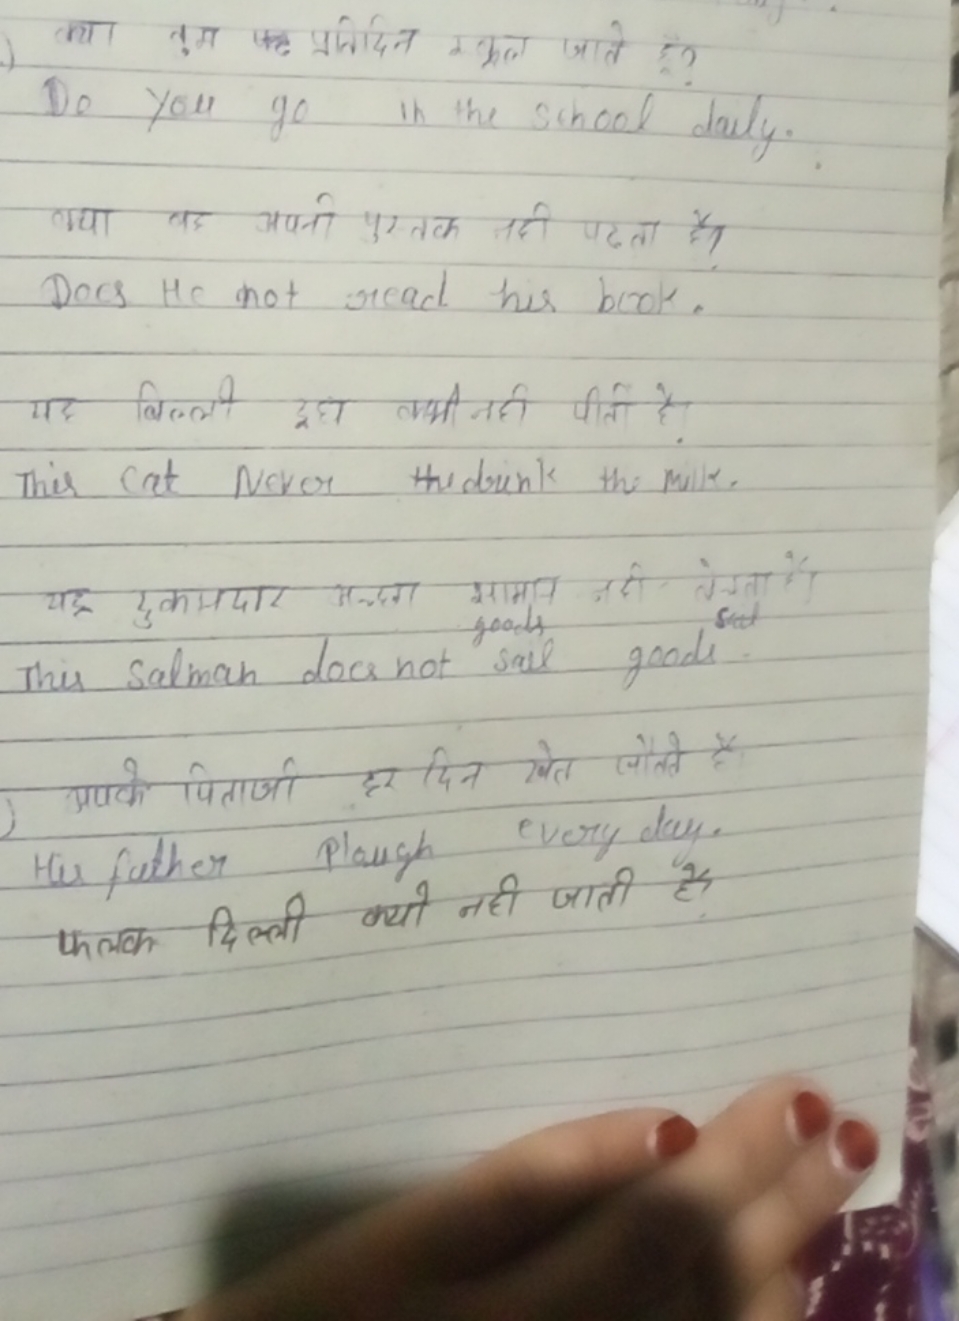 क्या तुम प्रतिदिन स्कूल जाते हैं?
Do You go in the school daily.
क्या वह अपनी पुस्तक नही पढता है?
Does He not read his book.
यह बिल्ली दूध कभी नही पीती है।
This Cat Never drink the milk.
यह दुकानदार अच्छा सामान नही बेचता है।
goods
This Salman does not sail goods.
आपके पिताजी हर दिन खेत जोतते हैं
His father Plaugh every day.
फलक दिल्ली क्यों नही जाती है?